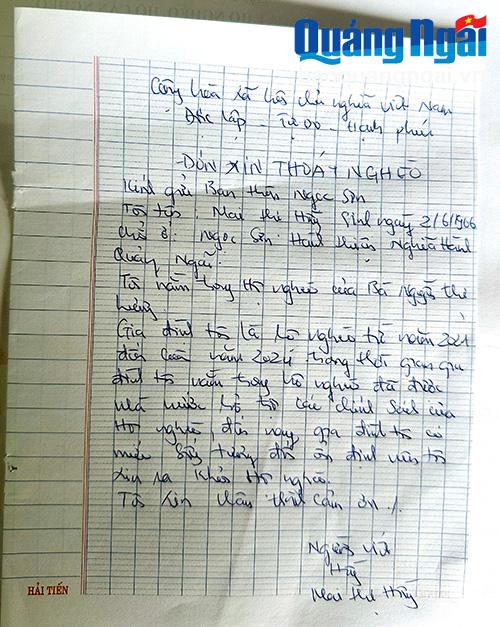 Quảng Ngãi
Cộng hòa xã hội chủ nghĩa Việt Nam
Độc lập - Tự do - Hạnh phúc
ĐƠN XIN THOÁT NGHÈO
Kính gửi Ban thôn Ngọc Sơn
Tôi tên: Mai thị Hồng Sinh ngày 2/6/1966
chỗ ở: Ngọc Sơn Hành Nghĩa Hành
Quảng Ngãi.
Tôi nằm trong Hộ nghèo của Bà Nguyễn thị
Gia đình tôi là hộ nghèo từ năm 2021
đến cuối năm 2024 trong thời gian gia
đình tôi nằm trong hộ nghèo đã được
nhà nước hỗ trợ các chính sách của
Hộ nghèo đến nay gia đình tôi có
mức sống tương đối ổn định nên tôi
xin ra khỏi Hộ nghèo.
Tôi xin chân thành cảm ơn ./.
Người viết
Mai thị Hồng
HẢI TIẾN